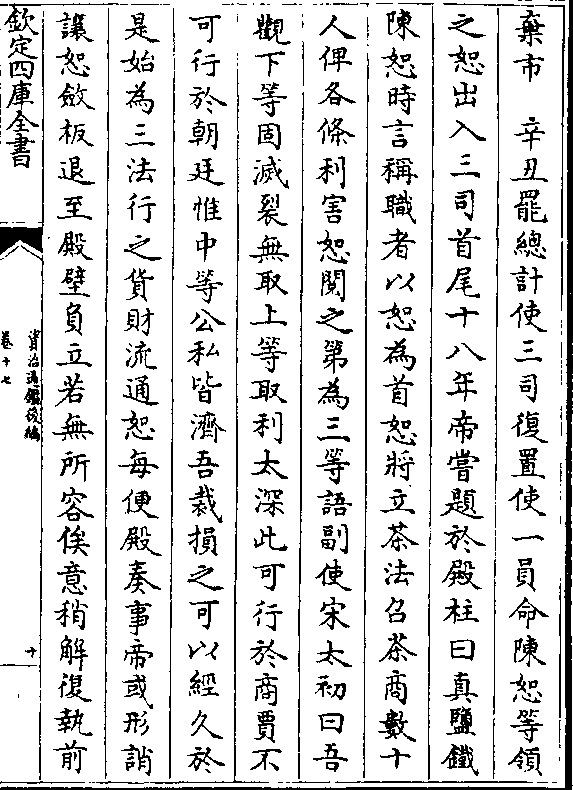 棄市　辛丑罷總計使三司復置使一員命陳恕等領
之恕出入三司首尾十八年帝嘗題於殿柱曰真鹽鐵
陳恕時言稱職者以恕為首恕將立茶法召茶商數十
人俾各條利害恕閱之第為三等語副使宋太初曰吾
觀下等固滅裂無取上等取利太深此可行於商賈不
可行於朝廷惟中等公私皆濟吾裁損之可以經久於
是始為三法行之貨財流通恕每便殿奏事帝或形誚
讓恕斂板退至殿壁負立若無所容俟意稍解復執前
欽定四庫全書
資治通鑑後編
卷十七
十